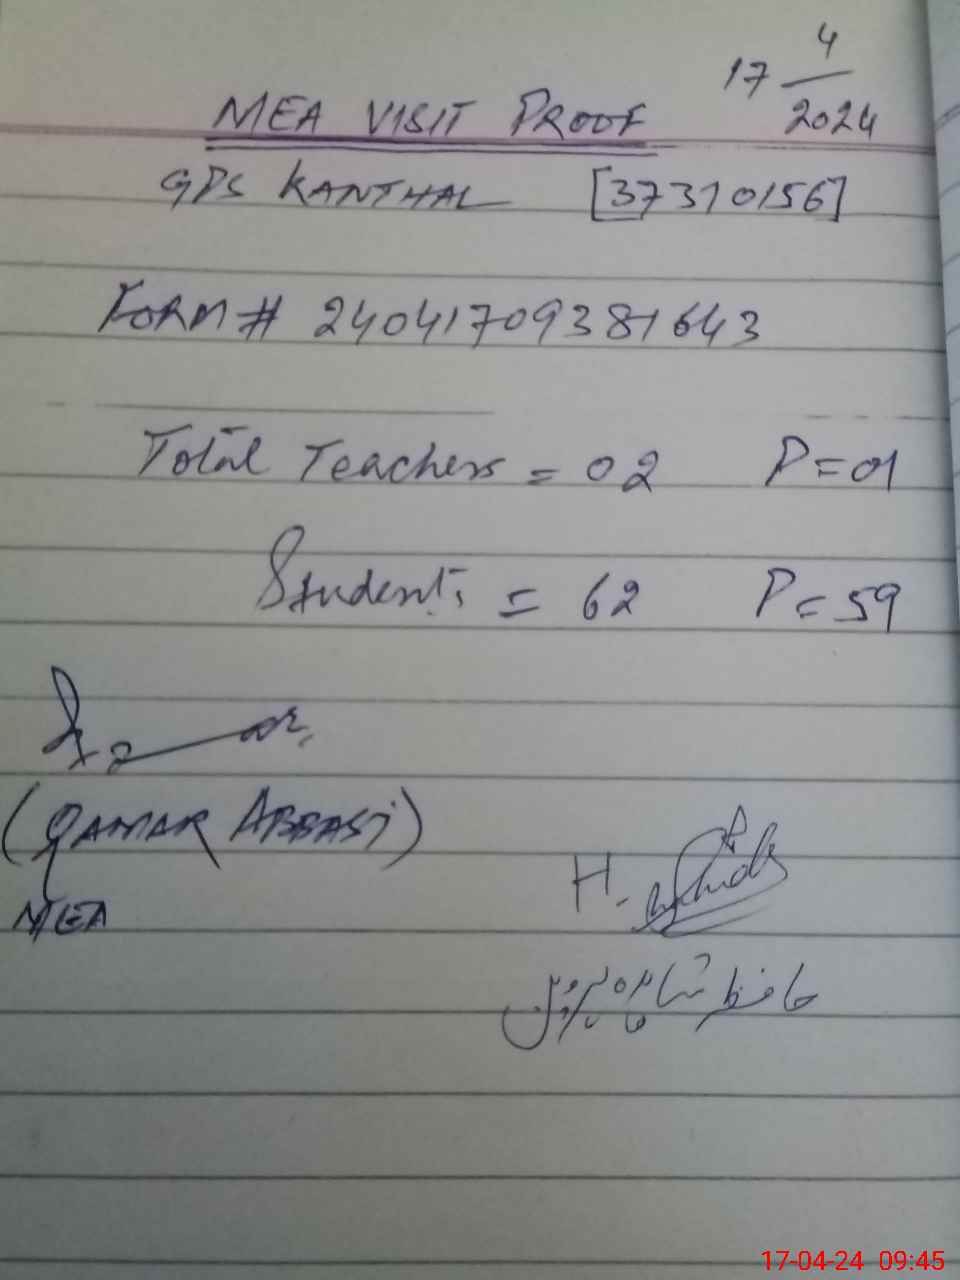 17 4/2024
MEA VISIT PROOF
GPS KANTHAL [37310156]
FORM # 24041709381643
Total Teachers = 02 P=01
Students = 62 P=59
(QAMAR ABBASI)
MEA
H.
حافظ شاہدہ پروین
17-04-24 09:45